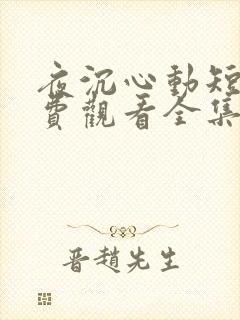 夜沉心動短
費觀看全集
晋趙先生